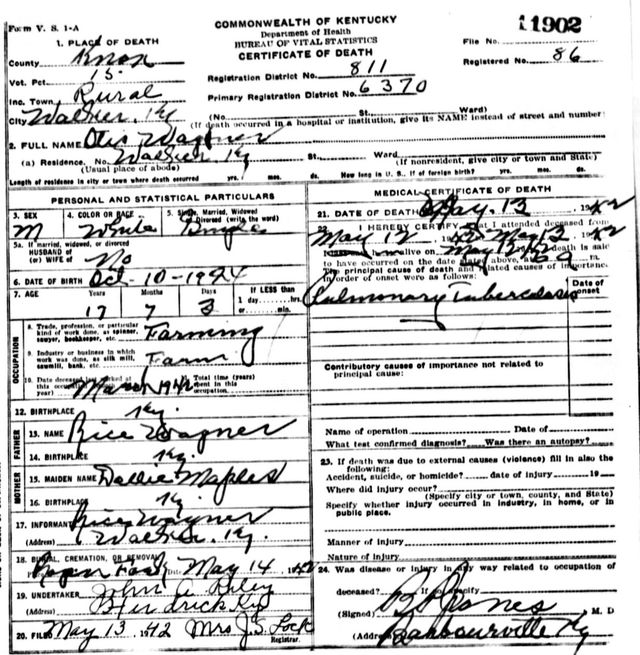 Form V. S. 1-A
COMMONWEALTH OF KENTUCKY
Department of Health
BUREAU OF VITAL STATISTICS
CERTIFICATE OF DEATH
File No. 11902
Registered No. 86
1. PLACE OF DEATH
County Knox
Vot. Pct. 15
Inc. Town Rural
City Walker, Ky
Registration District No. 811
Primary Registration District No. 6370
(No. St. Ward)
(If death occurred in a hospital or institution, give its NAME instead of street and number)
2. FULL NAME Otis Wagner
(a) Residence. No. Walker Ky St. Ward
(Usual place of abode) (If nonresident, give city or town and State)
Length of residence in city or town where death occurred yrs. mos. ds. How long in U. S., if of foreign birth? yrs. mos. ds.
PERSONAL AND STATISTICAL PARTICULARS
3. SEX 4. COLOR OR RACE 5. Single, Married, Widowed
Divorced (write the word)
M White Single
5a. If married, widowed, or divorced
HUSBAND of
(or) WIFE of No
6. DATE OF BIRTH Oct-10-1924
7. AGE Years Months Days If LESS than
1 day, hrs.
or min.
17 7 3
OCCUPATION
8. Trade, profession, or particular
kind of work done, as spinner,
sawyer, bookkeeper, etc. Farming
9. Industry or business in which
work was done, as silk mill,
sawmill, bank, etc. Farm
10. Date deceased last worked at
this occupation (month and
year) March 1942
Total time (years)
spent in this
occupation
12. BIRTHPLACE Ky.
FATHER
13. NAME Rice Wagner
14. BIRTHPLACE Ky.
MOTHER
15. MAIDEN NAME Dallie Maples
16. BIRTHPLACE Ky
17. INFORMANT Rice Wagner
(Address) Walker, Ky.
18. BURIAL, CREMATION, OR REMOVAL
Date May 14, 1942
19. UNDERTAKER John A Riley
(Address)
20. FILED May 13, 1942 Mrs J. S. Lock
Registrar.
MEDICAL CERTIFICATE OF DEATH
21. DATE OF DEATH May. 13 1942
22. I HEREBY CERTIFY, That I attended deceased from
May 12 1942 May 13 1942
I last saw h alive on May 12 1942 death is said
to have occurred on the date stated above, at m.
The principal cause of death and related causes of importance
in order of onset were as follows:
Date of
onset
Pulmonary Tuberculosis
Contributory causes of importance not related to
principal cause:
Name of operation Date of
What test confirmed diagnosis? Was there an autopsy?
23. If death was due to external causes (violence) fill in also the
following:
Accident, suicide, or homicide? date of injury 19
Where did injury occur?
(Specify city or town, county, and State)
Specify whether injury occurred in Industry, in home, or in
public place.
Manner of injury
Nature of injury
24. Was disease or injury in any way related to occupation of
deceased? If so specify
(Signed) Jones M. D
(Address) Barbourville Ky